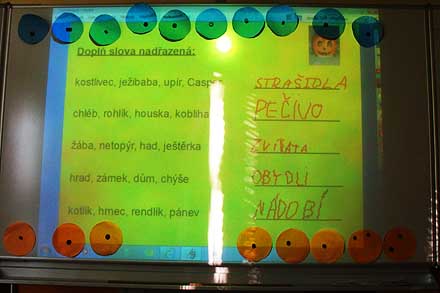 Doplň slova nadřazená:
kostlivec, ježibaba, upír, Casper STRAŠIDLA
chléb, rohlík, houska, kobliha PEČIVO
žába, netopýr, had, ještěrka ZVÍŘATA
hrad, zámek, dům, chýše OBYDLÍ
kotlík, hrnec, rendlík, pánev NÁDOBÍ